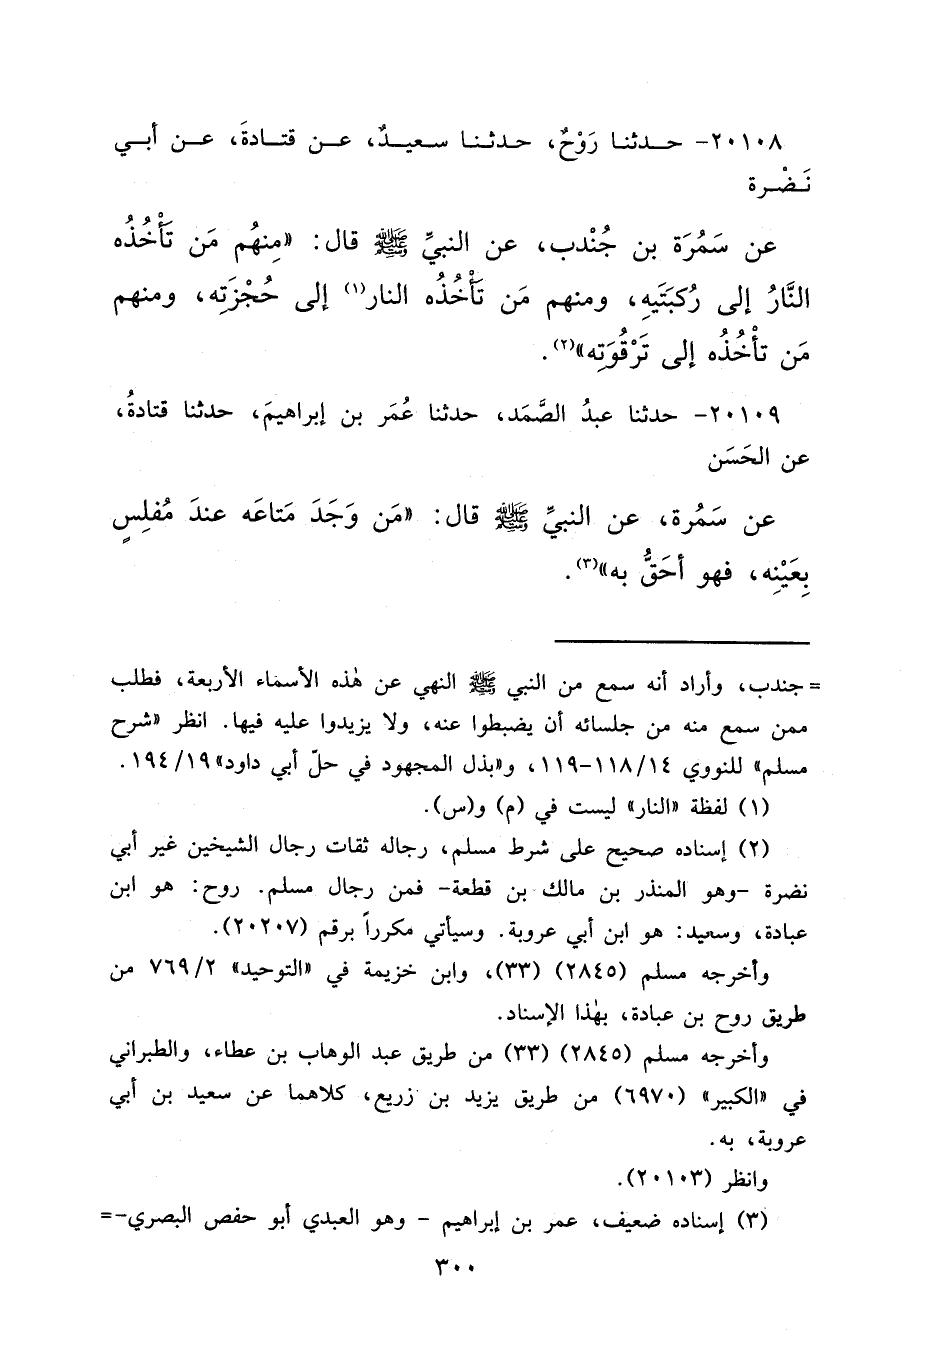 ٢٠١٠٨- حـدثنا رَوْحٌ، حدثنا سعيدٌ، عن قتادةَ، عن أبي
نَضْرة
عن سَمُرَة بن جُنْدب، عن النبيِّ ﷺ قال: «مِنهُم مَن تَأْخُذُه
النَّارُ إلى رُكبَتَيهِ، ومنهم مَن تَأْخُذُه النار(١) إلى حُجْزَتِه، ومنهم
مَن تأْخُذُه إلى تَرْقُوَتِه»(٢).
٢٠١٠٩- حدثنا عبدُ الصَّمَد، حدثنا عُمَر بن إبراهيمَ، حدثنا قتادةُ،
عن الحَسَن
عن سَمُرة، عن النبيِّ ﷺ قال: «مَن وَجَدَ مَتاعَه عندَ مُفلِسٍ
بِعَيْنِه، فهو أحَقُّ به»(٣).
= جندب، وأراد أنه سمع من النبي ﷺ النهي عن هٰذه الأسماء الأربعة، فطلب
ممن سمع منه من جلسائه أن يضبطوا عنه، ولا يزيدوا عليه فيها. انظر «شرح
مسلم» للنووي ١١٨/١٤-١١٩، و«بذل المجهود في حلّ أبي داود» ١٩٤/١٩.
(١) لفظة «النار» ليست في (م) و(س).
(٢) إسناده صحيح على شرط مسلم، رجاله ثقات رجال الشيخين غير أبي
نضرة -وهو المنذر بن مالك بن قطعة- فمن رجال مسلم. روح: هو ابن
عبادة، وسعيد: هو ابن أبي عروبة. وسيأتي مكرراً برقم (٢٠٢٠٧).
وأخرجه مسلم (٢٨٤٥) (٣٣)، وابن خزيمة في «التوحيد» ٧٦٩/٢ من
طريق روح بن عبادة، بهٰذا الإسناد.
وأخرجه مسلم (٢٨٤٥) (٣٣) من طريق عبد الوهاب بن عطاء، والطبراني
في «الكبير» (٦٩٧٠) من طريق يزيد بن زريع، كلاهما عن سعيد بن أبي
عروبة، به.
وانظر (٢٠١٠٣).
(٣) إسناده ضعيف، عمر بن إبراهيم - وهو العبدي أبو حفص البصري-=
٣٠٠